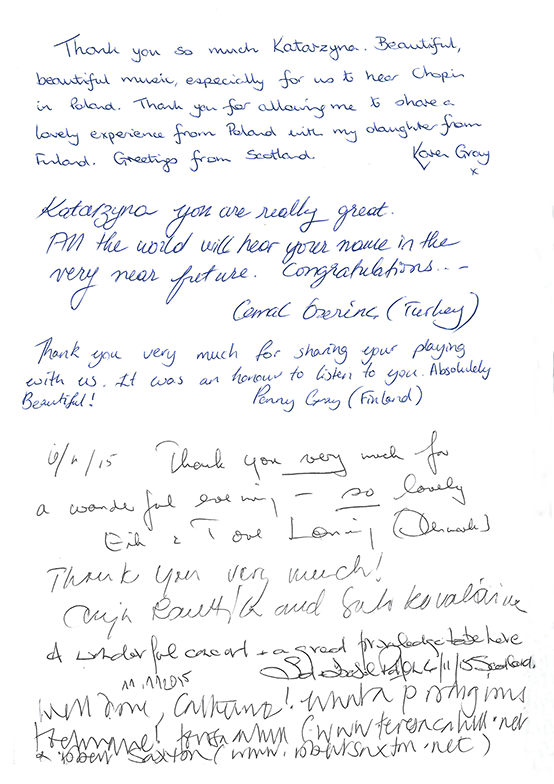 Thank you so much Katarzyna. Beautiful,
beautiful music, especially for us to hear Chopin
in Poland. Thank you for allowing me to share a
lovely experience from Poland with my daughter from
Finland. Greetings from Scotland. Karen Gray
x
Katarzyna you are really great.
All the world will hear your name in the
very near future. Congratulations...
Cemal (Turkey)
Thank you very much for sharing your playing
with us. It was an honour to listen to you. Absolutely
Beautiful! Penny Gray (Finland)
6/11/15 Thank you very much for
a wonderful evening - so lovely
Erik & Tove (Denmark)
Thank you very much!
and
A wonderful concert + a great to be here
6/11/15 Scotland.
11.11.2015
Well done, ! What a prodigious
technique! (www.teresacahill.net
& Robert Saxton (www.robertsaxton.net)